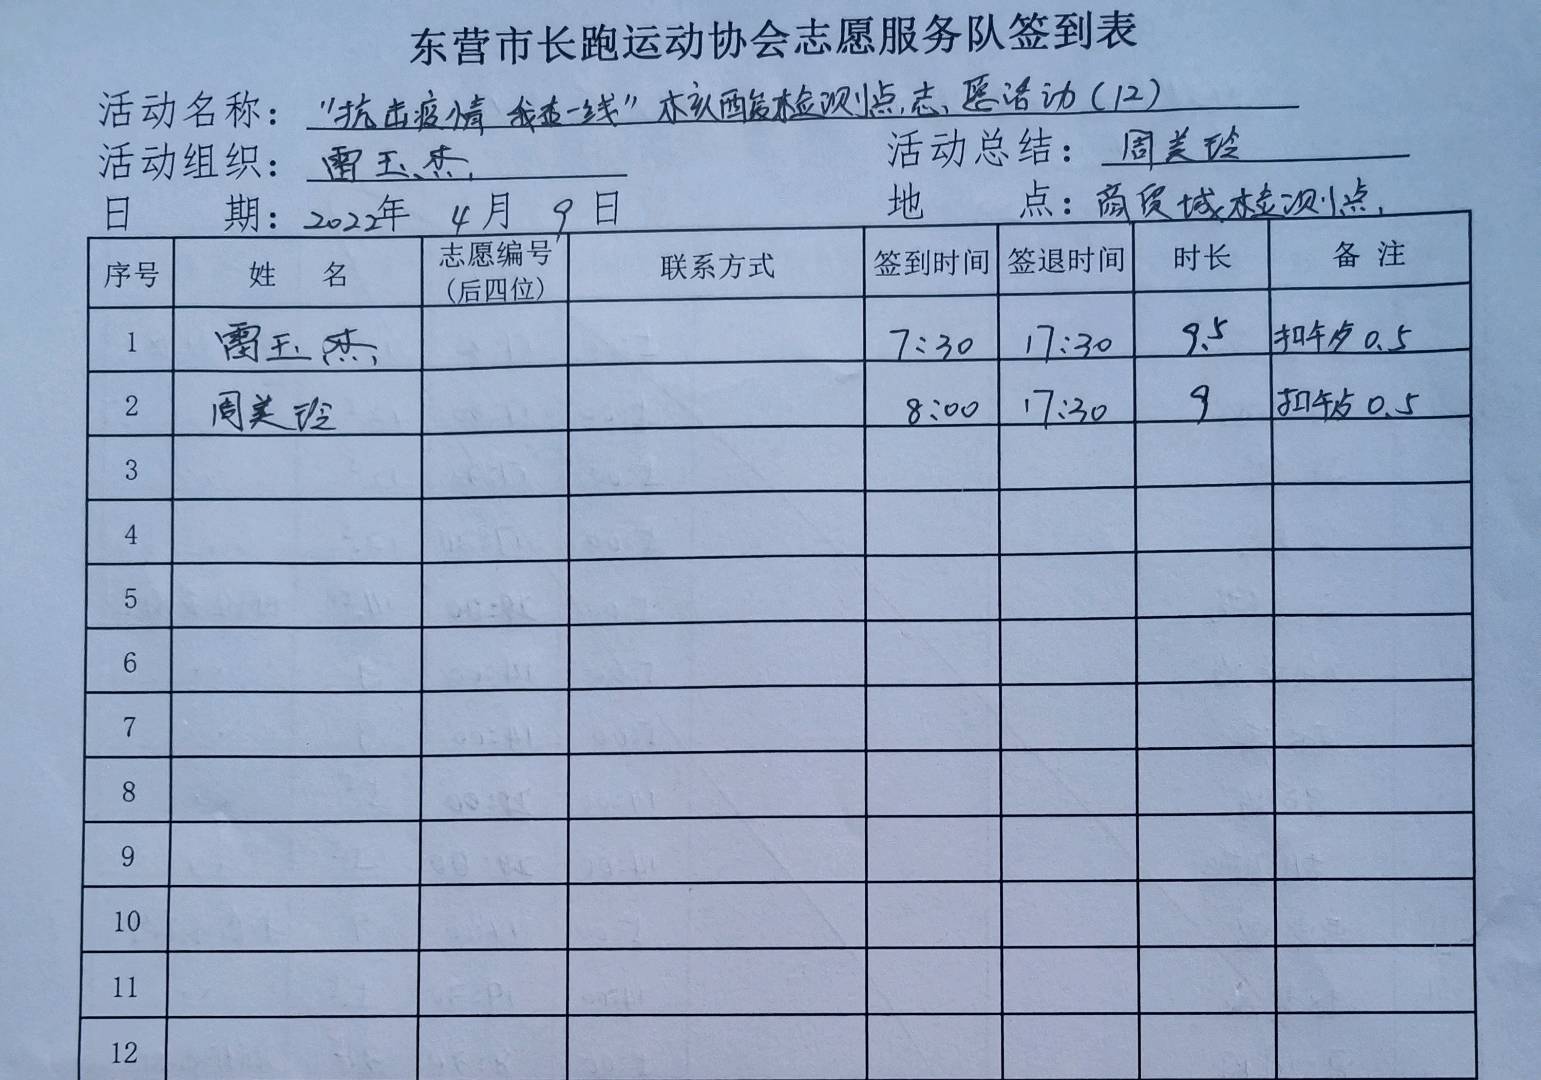 东营市长跑运动协会志愿服务队签到表
活动名称：“抗击疫情 我在一线”核酸检测点志愿活动（12）
活动组织：雷玉杰 活动总结：周美玲
日 期：2022年 4月 9日 地 点：商贸城检测点
序号 姓 名 志愿编号（后四位） 联系方式 签到时间 签退时间 时长 备 注
1 雷玉杰 7:30 17:30 9.5 扣午饭0.5
2 周美玲 8:00 17:30 9 扣午饭0.5
3
4
5
6
7
8
9
10
11
12